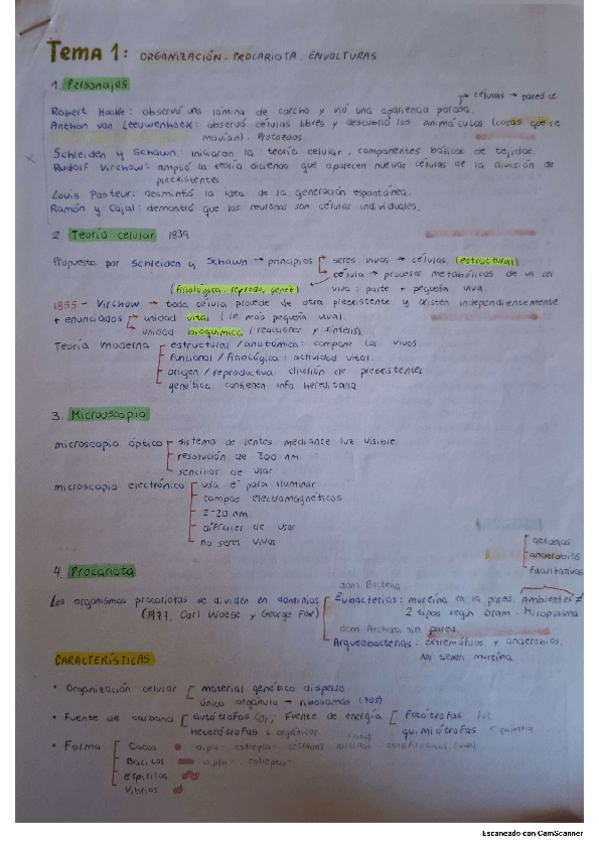 Tema 1: ORGANIZACIÓN. PROCARIOTA. ENVOLTURAS
1. Personajes
→ células → paredes
Robert Hooke: observó una lámina de corcho y vió una apariencia porosa.
Anthon van Leeuwenhoek: observó células libres y descubrió los animáculos (cosas que se
movían). Protozoos.
x Schleiden y Schawn: iniciaron la teoría celular, componentes básicos de tejidos.
Rudolf Virchow: amplió la teoría diciendo que aparecen nuevas células de la división de
preexistentes.
Louis Pasteur: desmintió la idea de la generación espontánea.
Ramón y Cajal: demostró que las neuronas son células individuales.
2. Teoría celular 1839
Propuesta por Schleiden y Schawn → principios seres vivos → células (estructural)
célula → procesos metabólicos de un ser
(fisiológica, reprodu, genet) vivo: parte + pequeña viva.
1855 - Virchow → toda célula procede de otra preexistente y existen independientemente
+ enunciados unidad vital (la más pequeña viva).
unidad bioquímica (reacciones y síntesis).
Teoría moderna estructural / anatómica: compone los vivos
funcional / fisiológica: actividad vital.
origen / reproductiva: división de preexistentes
genética: contienen info hereditaria.
3. Microscopio
microscopio óptico sistema de lentes mediante luz visible.
resolución de 200 nm
sencillos de usar
microscopio electrónico usa e⁻ para iluminar
campos electromagnéticos
2-20 nm
difíciles de usar
no seres vivos
aerobios
anaerobios
facultativos
4. Procariota
dom Bacteria
Los organismos procariotas se dividen en dominios Eubacterias: mureína en la pared. Ambientes ≠
(1977, Carl Woese y George Fox) 2 tipos según Gram. Micoplasma
dom Archaea sin pared
Arqueobacterias: extremófilos y anaerobios.
No tienen mureína.
CARACTERÍSTICAS
• Organización celular material genético disperso
único orgánulo → ribosomas (70s)
• Fuente de carbono autótrofas CO₂; Fuente de energía Fotótrofas luz
heterótrofas c. orgánicos quimiótrofas
• Forma Cocos
Bacilos
espirilos
Vibrios
Escaneado con CamScanner